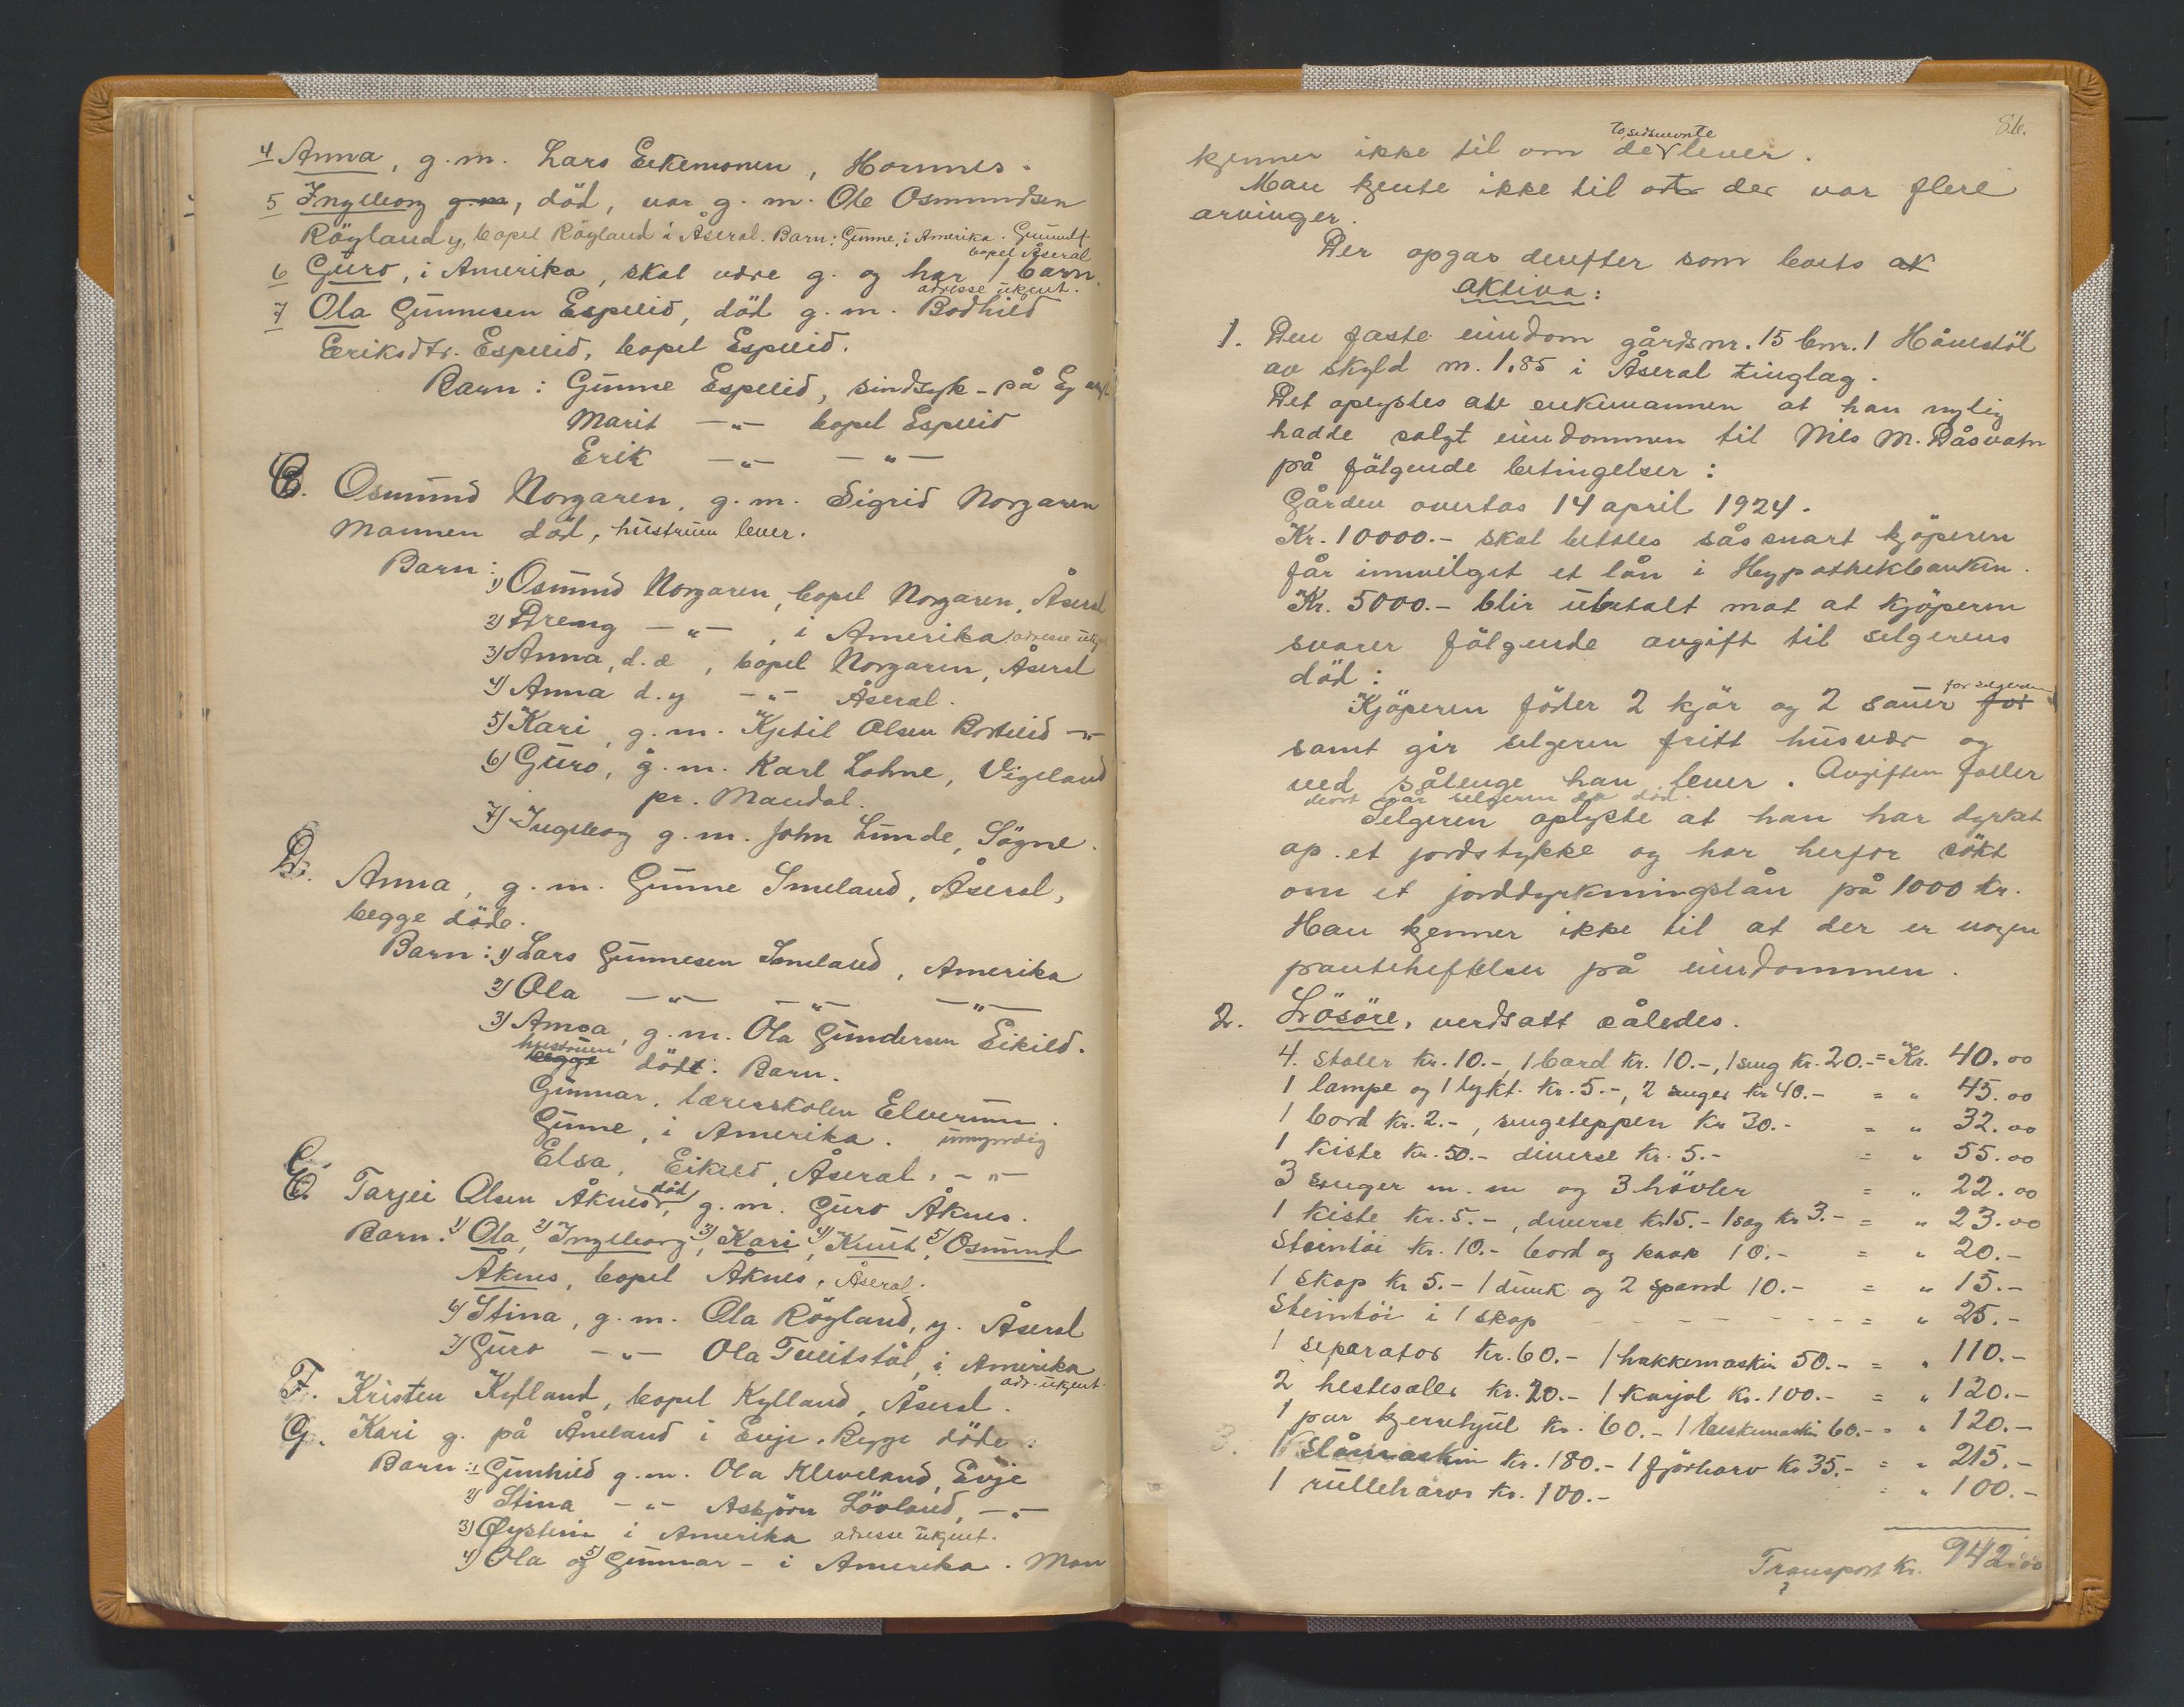 4 Anna, g.m. Lars Eikemonen, Hornnes.
5 Ingeborg g.m, död, var g.m. Ole Osmundsen
Röyland y, bopel Röyland i Åseral. Barn: Gunne, i Amerika. Gunnulf
bopel Åseral
6 Guro, i Amerika, skal være g. og har 1 barn.
adresse ukjent.
7 Ola Gunnesen Espelid, död g.m. Bodhild
Eriksdtr. Espelid, bopel Espelid.
Barn: Gunne Espelid, sindsyk - på Eg asyl
Marit -"- bopel Espelid
Erik -"- -"-
B. Osmund Norgaren, g.m. Sigrid Norgaren
Mannen död, hustruen lever.
Barn:
1) Osmund Norgaren, bopel Norgaren, Åseral
2) Dreng -"-, i Amerika adresse ukj
3) Anna, d.e, bopel Norgaren, Åseral
4) Anna d.y -"- Åseral.
5) Kari, g.m. Kjetil Olsen Bortelid -"-
6) Guro, g.m. Karl Lohne, Vigeland
pr. Mandal.
7) Ingeborg g.m. John Lunde, Sögne.
D. Anna, g.m. Gunne Smeland, Åseral,
begge döde.
Barn: 1) Lars Gunnesen Smeland, Amerika
2) Ola -"- -"- -"-
3) Anna, g.m. Ola Gundersen Eikild.
hustruen
begge död: Barn.
Gunnar, lærerskolen Elverum.
Gunne, i Amerika. umyndig
Elsa, Eikild, Åseral, -"-
E. Tarjei Olsen Åknes, död g.m. Guro Åknes.
Barn: 1) Ola, 2) Ingeborg, 3) Kari, 4) Knut, 5) Osmund
Åknes, bopel Åknes, Åseral.
6) Stina, g.m. Ola Röyland, y. Åseral
7) Guro -"- Ola Tveitstöl, i Amerika
adr. ukjent.
F. Kristen Kylland, bopel Kylland, Åseral.
G. Kari g. på Åneland i Evje. Begge döde.
Barn: 1 Gunhild g.m. Ola Kleveland, Evje
2) Stina -"- Asbjörn Lövland, -"-
3) Øystein i Amerika adresse ukjent.
4) Ola og 5) Gunnar - i Amerika. Man
86.
to sidsnevnte
kjenner ikke til om de lever.
Man kjente ikke til at der var flere
arvinger.
Der opgas derefter som boets ak
aktiva:
1. Den faste eiendom gårdsnr. 15 bnr. 1 Håvestöl
av skyld m. 1,85 i Åseral tinglag.
Det oplystes av enkemannen at han nylig
hadde solgt eiendommen til Nils M. Dåsvatn
på fölgende betingelser:
Gården overtas 14 april 1924.
Kr. 10000.- skal betales såssnart kjöperen
får innvilget et lån i Hypothekbanken.
Kr. 5000.- blir ubetalt mot at kjöperen
svarer fölgende avgift til selgerens
död:
Kjöperen föder 2 kjör og 2 sauer for selgeren for
samt gir selgeren fritt husvær og
ved sålenge han lever. Avgiften faller
bort når selgeren er död.
Selgeren oplyste at han har dyrket
op et jordstykke og har herfor sökt
om et jorddyrkningslån på 1000 kr.
Han kjenner ikke til at der er nogen
panteheftelser på eiendommen.
2. Lösöre, verdsatt således.
4. stoler kr. 10.-, 1 bord kr. 10.-, 1 seng kr. 20.- = Kr. 40.00
1 lampe og 1 lykt. kr. 5.-, 2 senger kr 40.- = " 45.00
1 bord kr. 2.-, sengeteppen kr 30.- = " 32.00
1 kiste kr. 50.- diverse kr. 5.- = " 55.00
3 senger m.m og 3 hövler = " 22.00
1 kiste kr. 5.-, diverse kr 15.- 1 sag kr 3.- = " 23.00
Stentöi kr. 10.- bord og krak 10.- = " 20.-
1 skap kr 5.- 1 dunk og 2 spand 10.- = " 15.-
Steintöi i 1 skap - - - - - - - = " 25.-
1 separator kr. 60.- 1 hakkemaskin 50.- = " 110.-
2 hestesaler kr. 20.- 1 karjol kr. 100.- = " 120.-
1 par kjerrehjul kr. 60.- 1 treskemaskin 60.- = " 120.-
3. 1 slåmaskin kr. 180.- 1 fjörharv kr 35.- = " 215.-
1 rulleharv kr. 100.- = " 100.-
Transport kr. 942.00